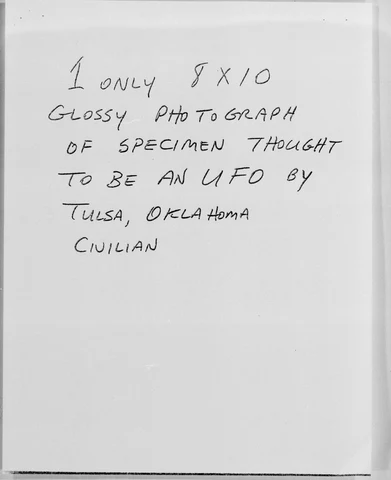 1 ONLY 8 X 10
GLOSSY PHOTOGRAPH
OF SPECIMEN THOUGHT
TO BE AN UFO BY
TULSA, OKLAHOMA
CIVILIAN